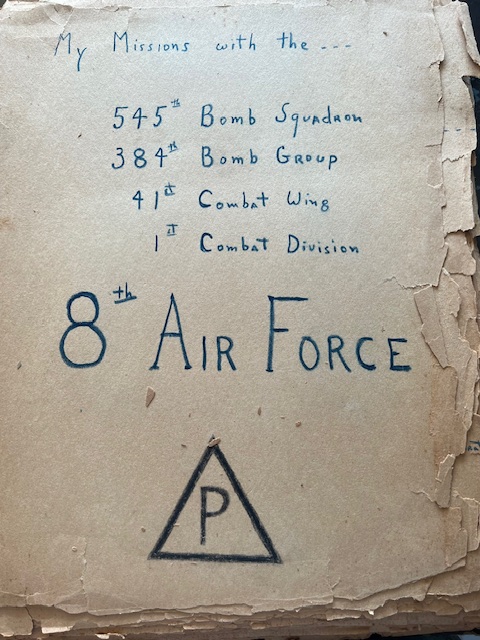 My Missions with the ---
545th Bomb Squadron
384th Bomb Group
41st Combat Wing
1st Combat Division
8th Air Force
P